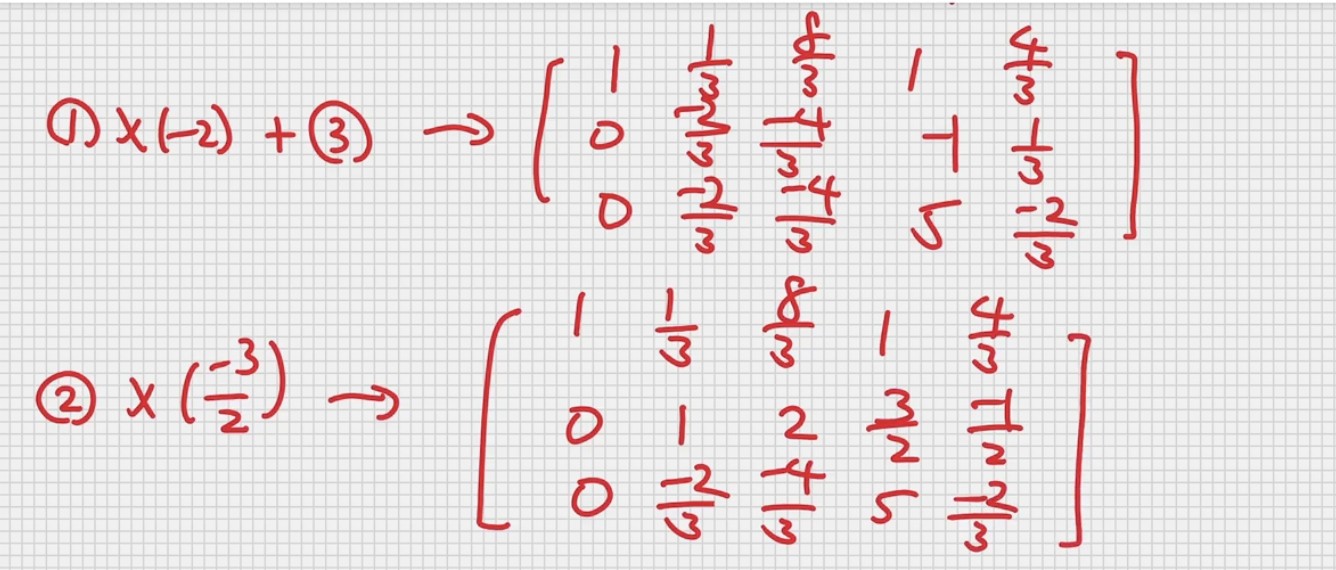 ① × (-2) + ③ → [ 1 1/3 8/3 1 4/3
0 -2/3 -4/3 -1 1/3
0 -2/3 -4/3 5 -2/3 ]
② × (-3/2) → [ 1 1/3 8/3 1 4/3
0 1 2 3/2 -1/2
0 -2/3 -4/3 5 -2/3 ]